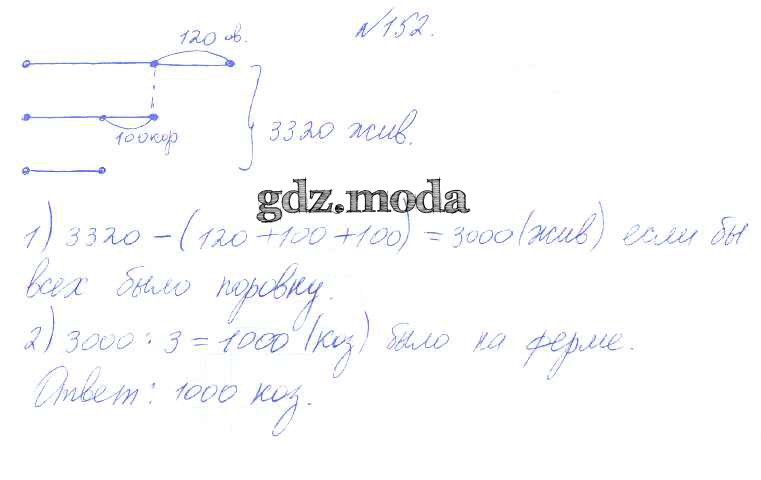 №152.
120 ов.
100 кор
3320 жив.
gdz.moda
1) 3320 - (120 + 100 + 100) = 3000 (жив) если бы
всех было поровну.
2) 3000 : 3 = 1000 (коз) было на ферме.
Ответ: 1000 коз.